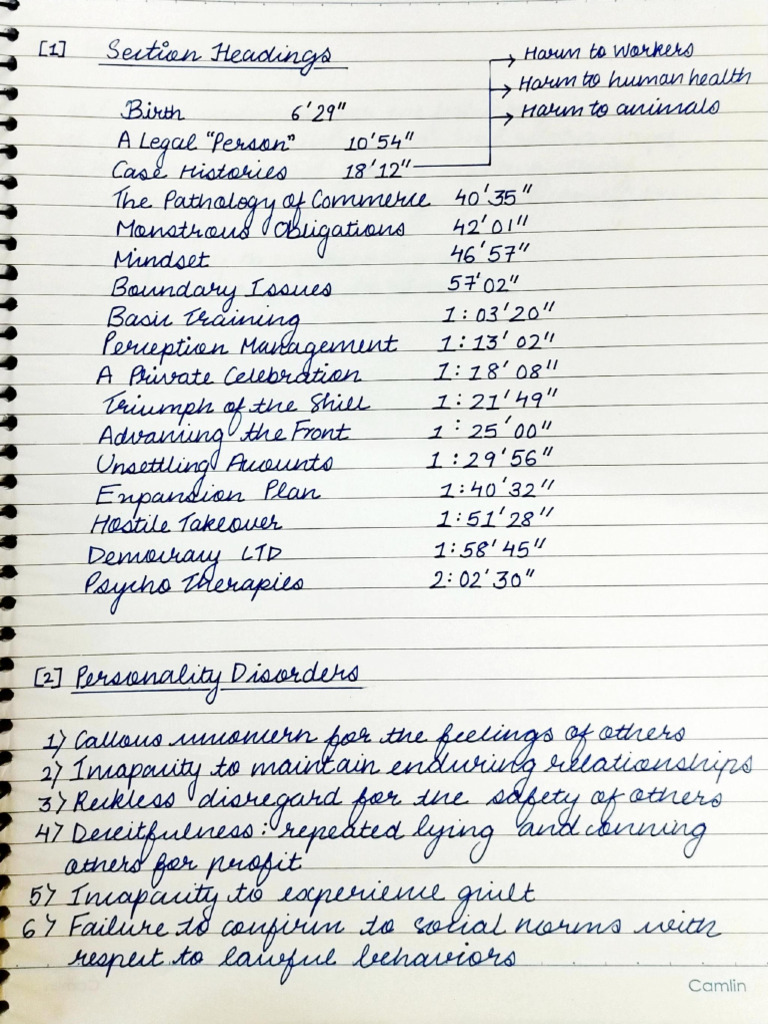 [1] Section Headings
→ Harm to workers
→ Harm to human health
→ Harm to animals
Birth 6'29"
A Legal "Person" 10'54"
Case Histories 18'12"
The Pathology of Commerce 40'35"
Monstrous Obligations 42'01"
Mindset 46'57"
Boundary Issues 57'02"
Basic Training 1:03'20"
Perception Management 1:13'02"
A Private Celebration 1:18'08"
Triumph of the Shill 1:21'49"
Advancing the Front 1:25'00"
Unsettling Accounts 1:29'56"
Expansion Plan 1:40'32"
Hostile Takeover 1:51'28"
Democracy LTD 1:58'45"
Psycho Therapies 2:02'30"
[2] Personality Disorders
1) Callous unconcern for the feelings of others
2) Incapacity to maintain enduring relationships
3) Reckless disregard for the safety of others
4) Deceitfulness: repeated lying and conning
others for profit
5) Incapacity to experience guilt
6) Failure to confirm to social norms with
respect to lawful behaviors
Camlin